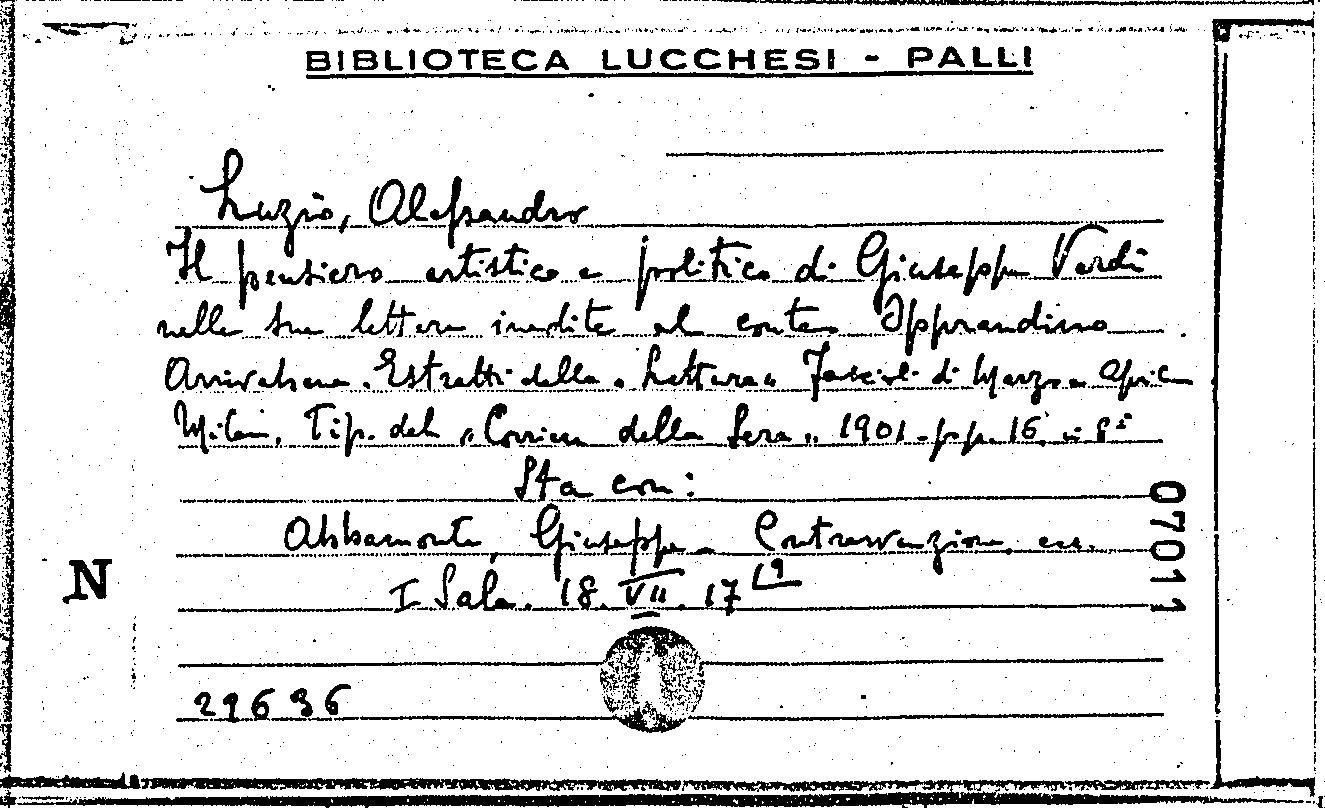 BIBLIOTECA LUCCHESI - PALLI
Luzio, Alessandro
Il pensiero artistico e politico di Giuseppe Verdi
nelle sue lettere inedite al conte Opprandino
Arrivabene. Estratti dalla „Lettura„ Fascicoli di Marzo e Aprile
Milano, Tip. del „Corriere della Sera„ 1901. pp. 16. in 8°
Sta con:
Abbamonte, Giuseppe. Contravvenzione, ecc.
I Sala. 18. VII. 17 19
N
07011
29636